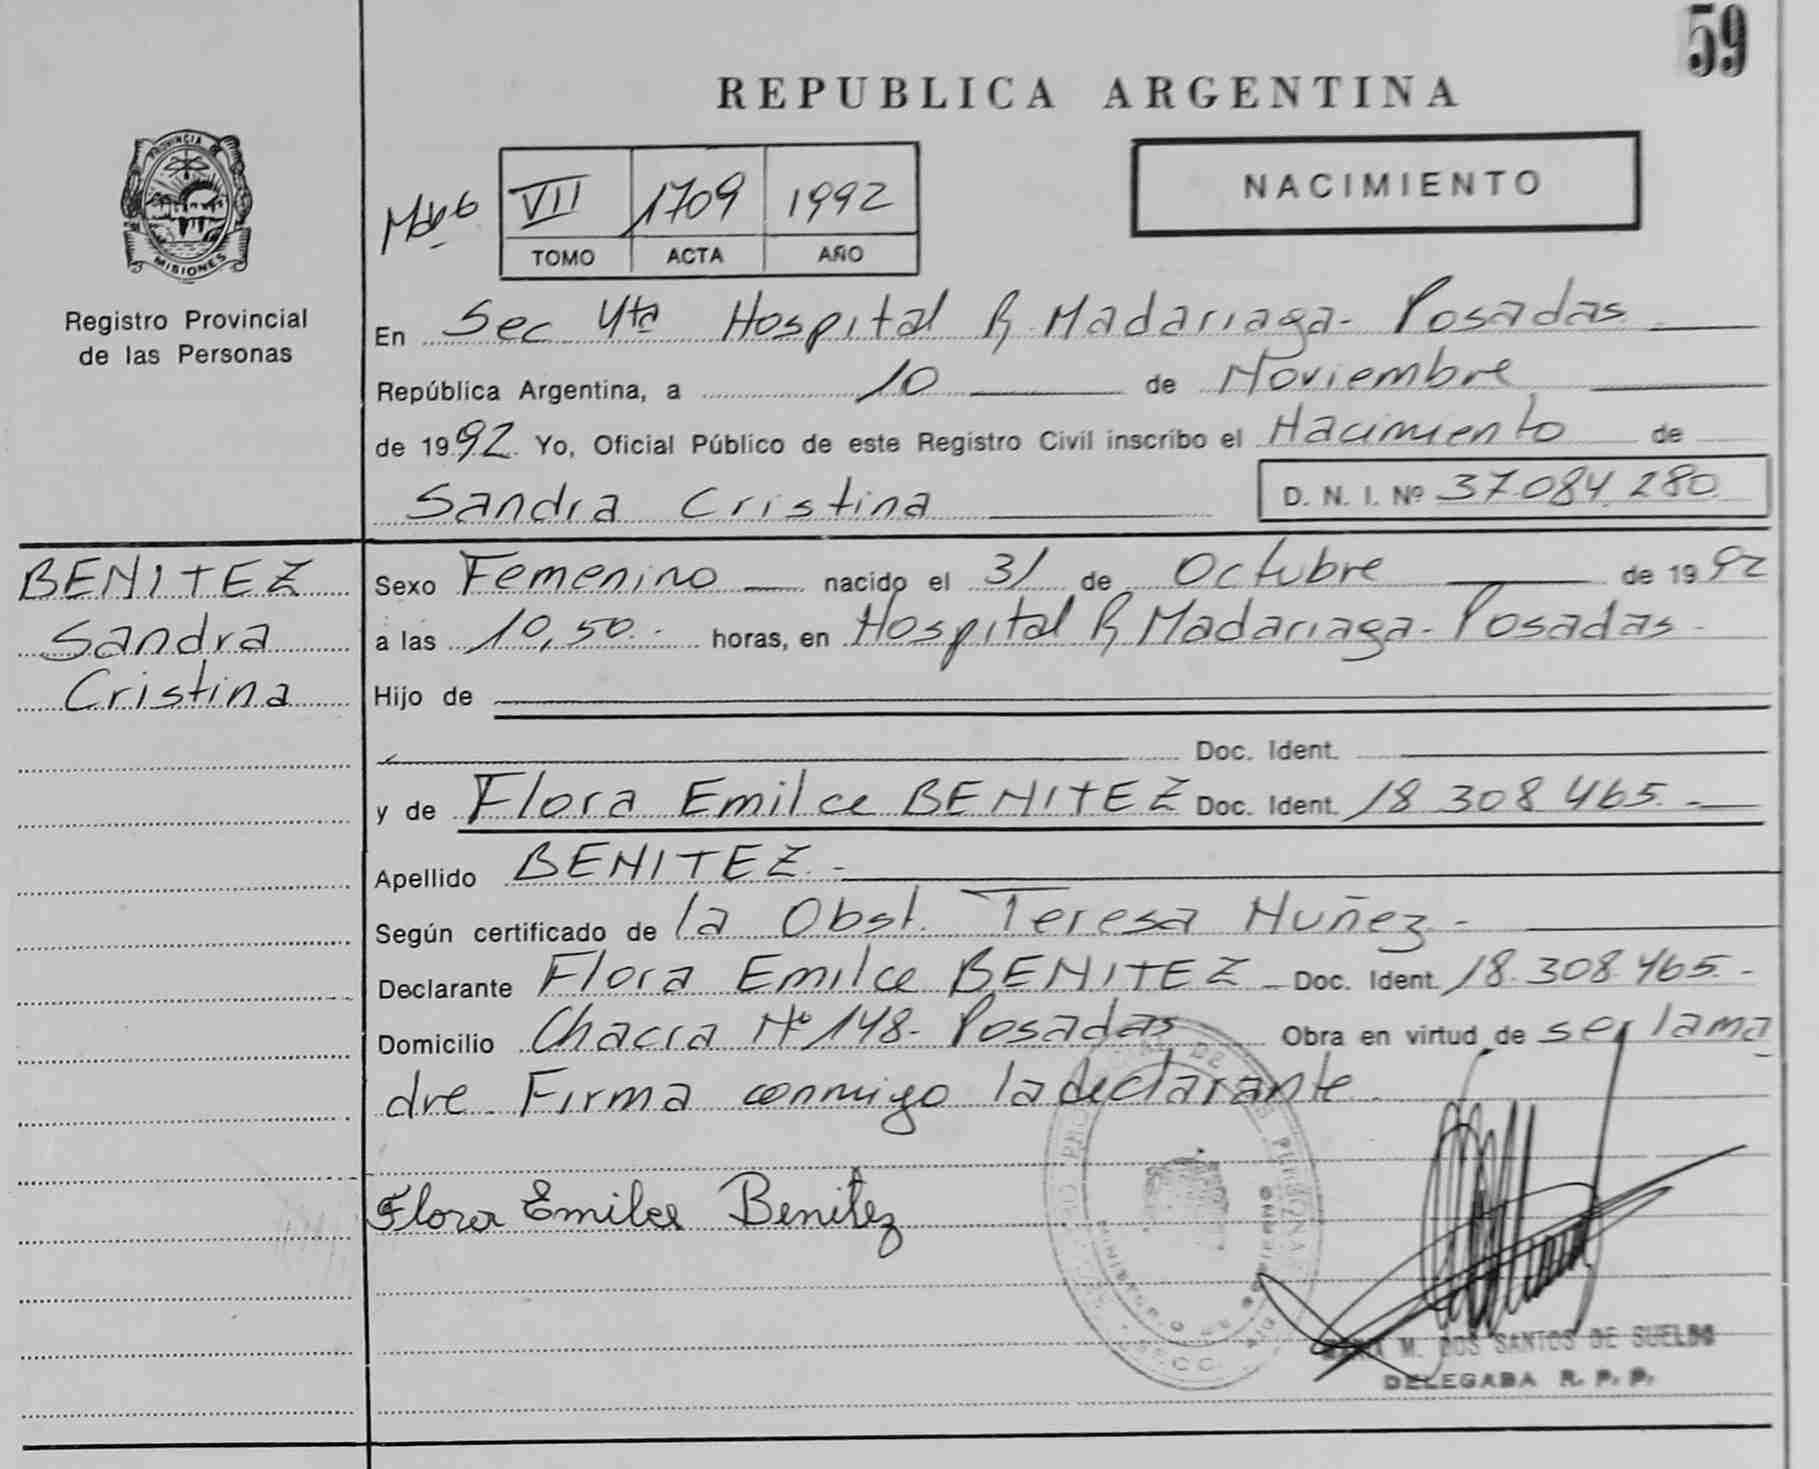 59
REPUBLICA ARGENTINA
NACIMIENTO
VII 1709 1992
TOMO ACTA AÑO
PROVINCIA DE
MISIONES
Registro Provincial
de las Personas
En Sec 4ta Hospital R, Madariaga- Posadas
República Argentina, a 10 de Noviembre
de 1992. Yo, Oficial Público de este Registro Civil inscribo el Nacimiento de
Sandra Cristina D. N. I. Nº 37.084.280
BENITEZ
Sandra
Cristina
Sexo Femenino nacido el 31 de Octubre de 1992
a las 10,50.- horas, en Hospital R, Madariaga- Posadas-
Hijo de
Doc. Ident.
y de Flora Emilce BENITEZ Doc. Ident. 18 308 465.-
Apellido BENITEZ.-
Según certificado de la Obst. Teresa Nuñez-
Declarante Flora Emilce BENITEZ - Doc. Ident. 18.308.465.-
Domicilio Chacra Nº 148- Posadas Obra en virtud de ser la ma
dre. Firma conmigo la declarante.
Flora Emilce Benitez
M. DOS SANTOS DE SUELDO
DELEGADA R. P. P.